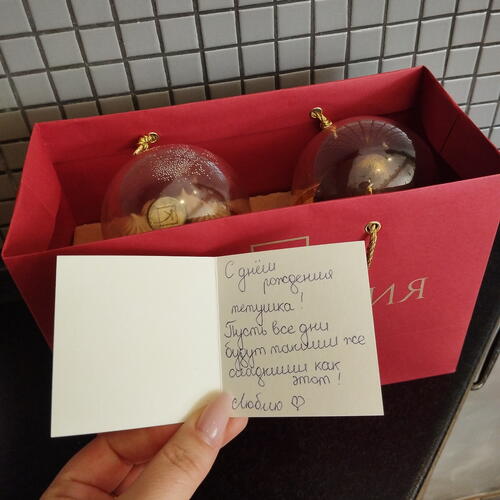 С днём
рождения
!
Пусть все дни
будут такими же
сладкими как
этот!
Люблю ♡